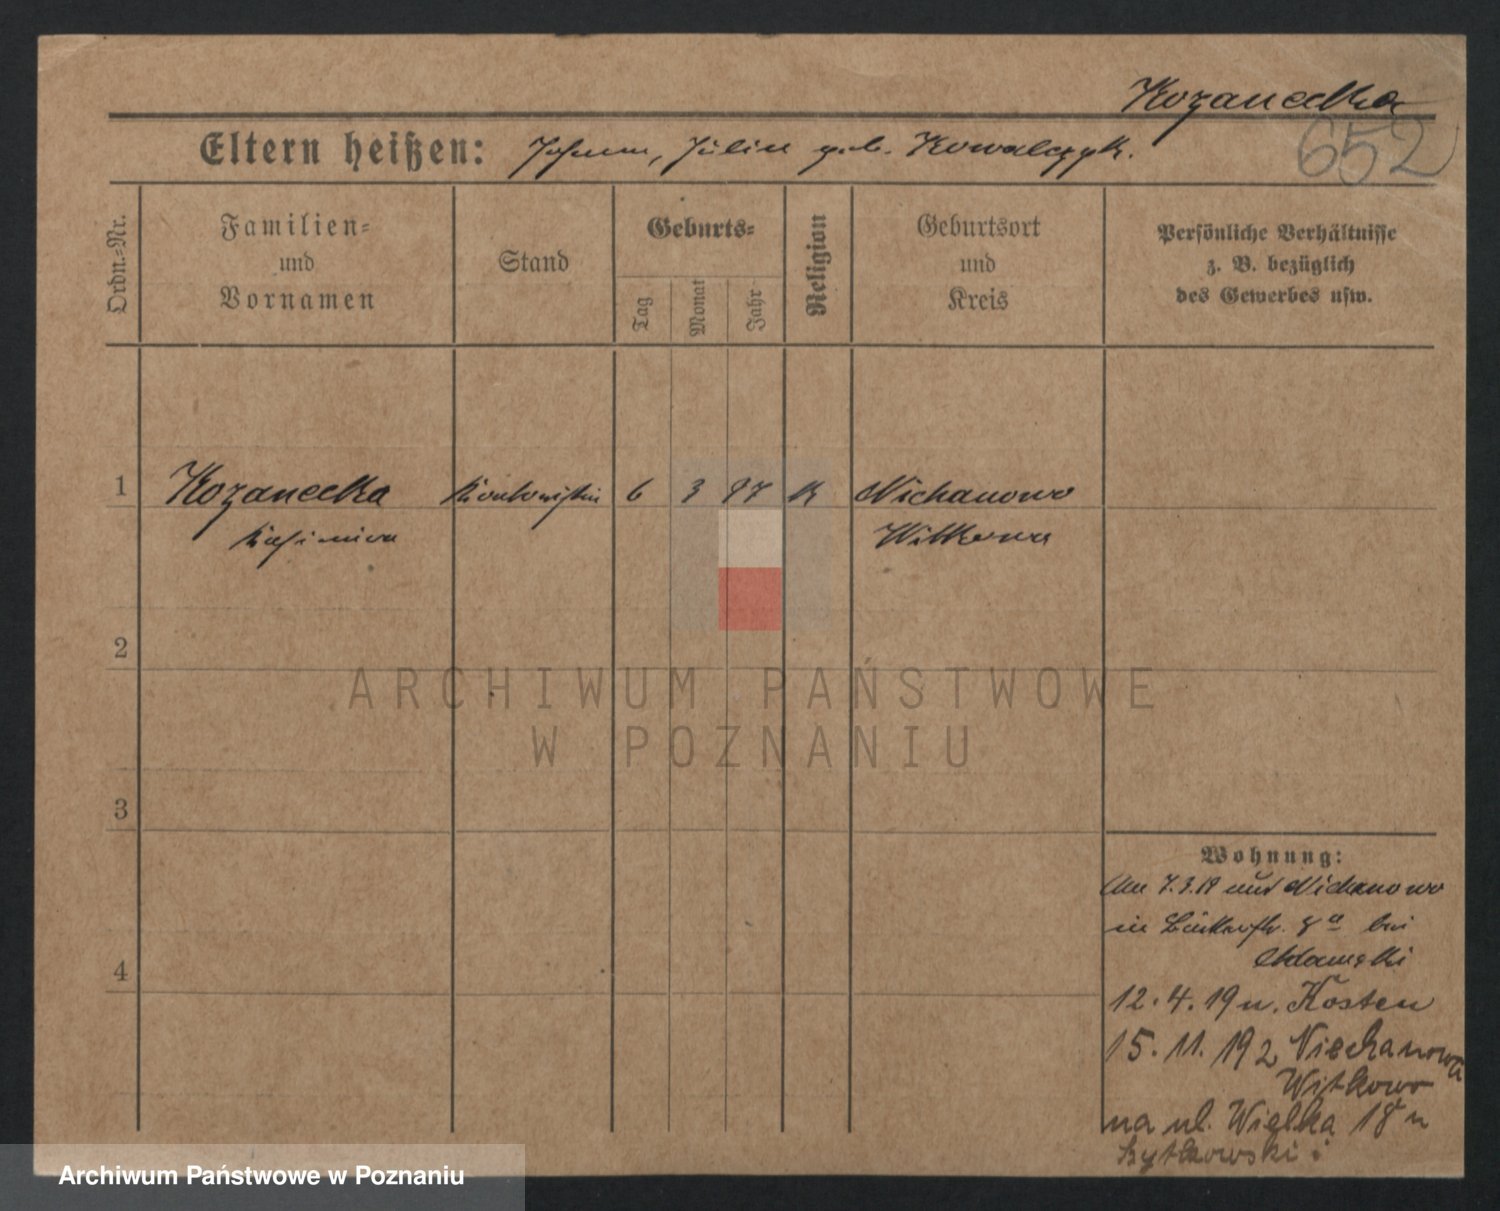 Kozanecka
652
Eltern heißen: Johann, Julie geb. Kowalczyk.
Ordn.-Nr.
Familien- und Vornamen
Stand
Geburts-
Tag
Monat
Jahr
Religion
Geburtsort und Kreis
Persönliche Verhältnisse
z. B. bezüglich
des Gewerbes usw.
1 Kozanecka Kontoristin 6 3 97 K Nichanowo
Kasimira Witkowo
2
ARCHIWUM PAŃSTWOWE
W POZNANIU
3
Wohnung:
7.3.19 aus Nichanowo
in 8a bei
Adamski
4
12.4.19 n. Kosten
15.11.192 Niechanowa
Witkowo
na ul. Wielka 18 u
Bytkowski
Archiwum Państwowe w Poznaniu